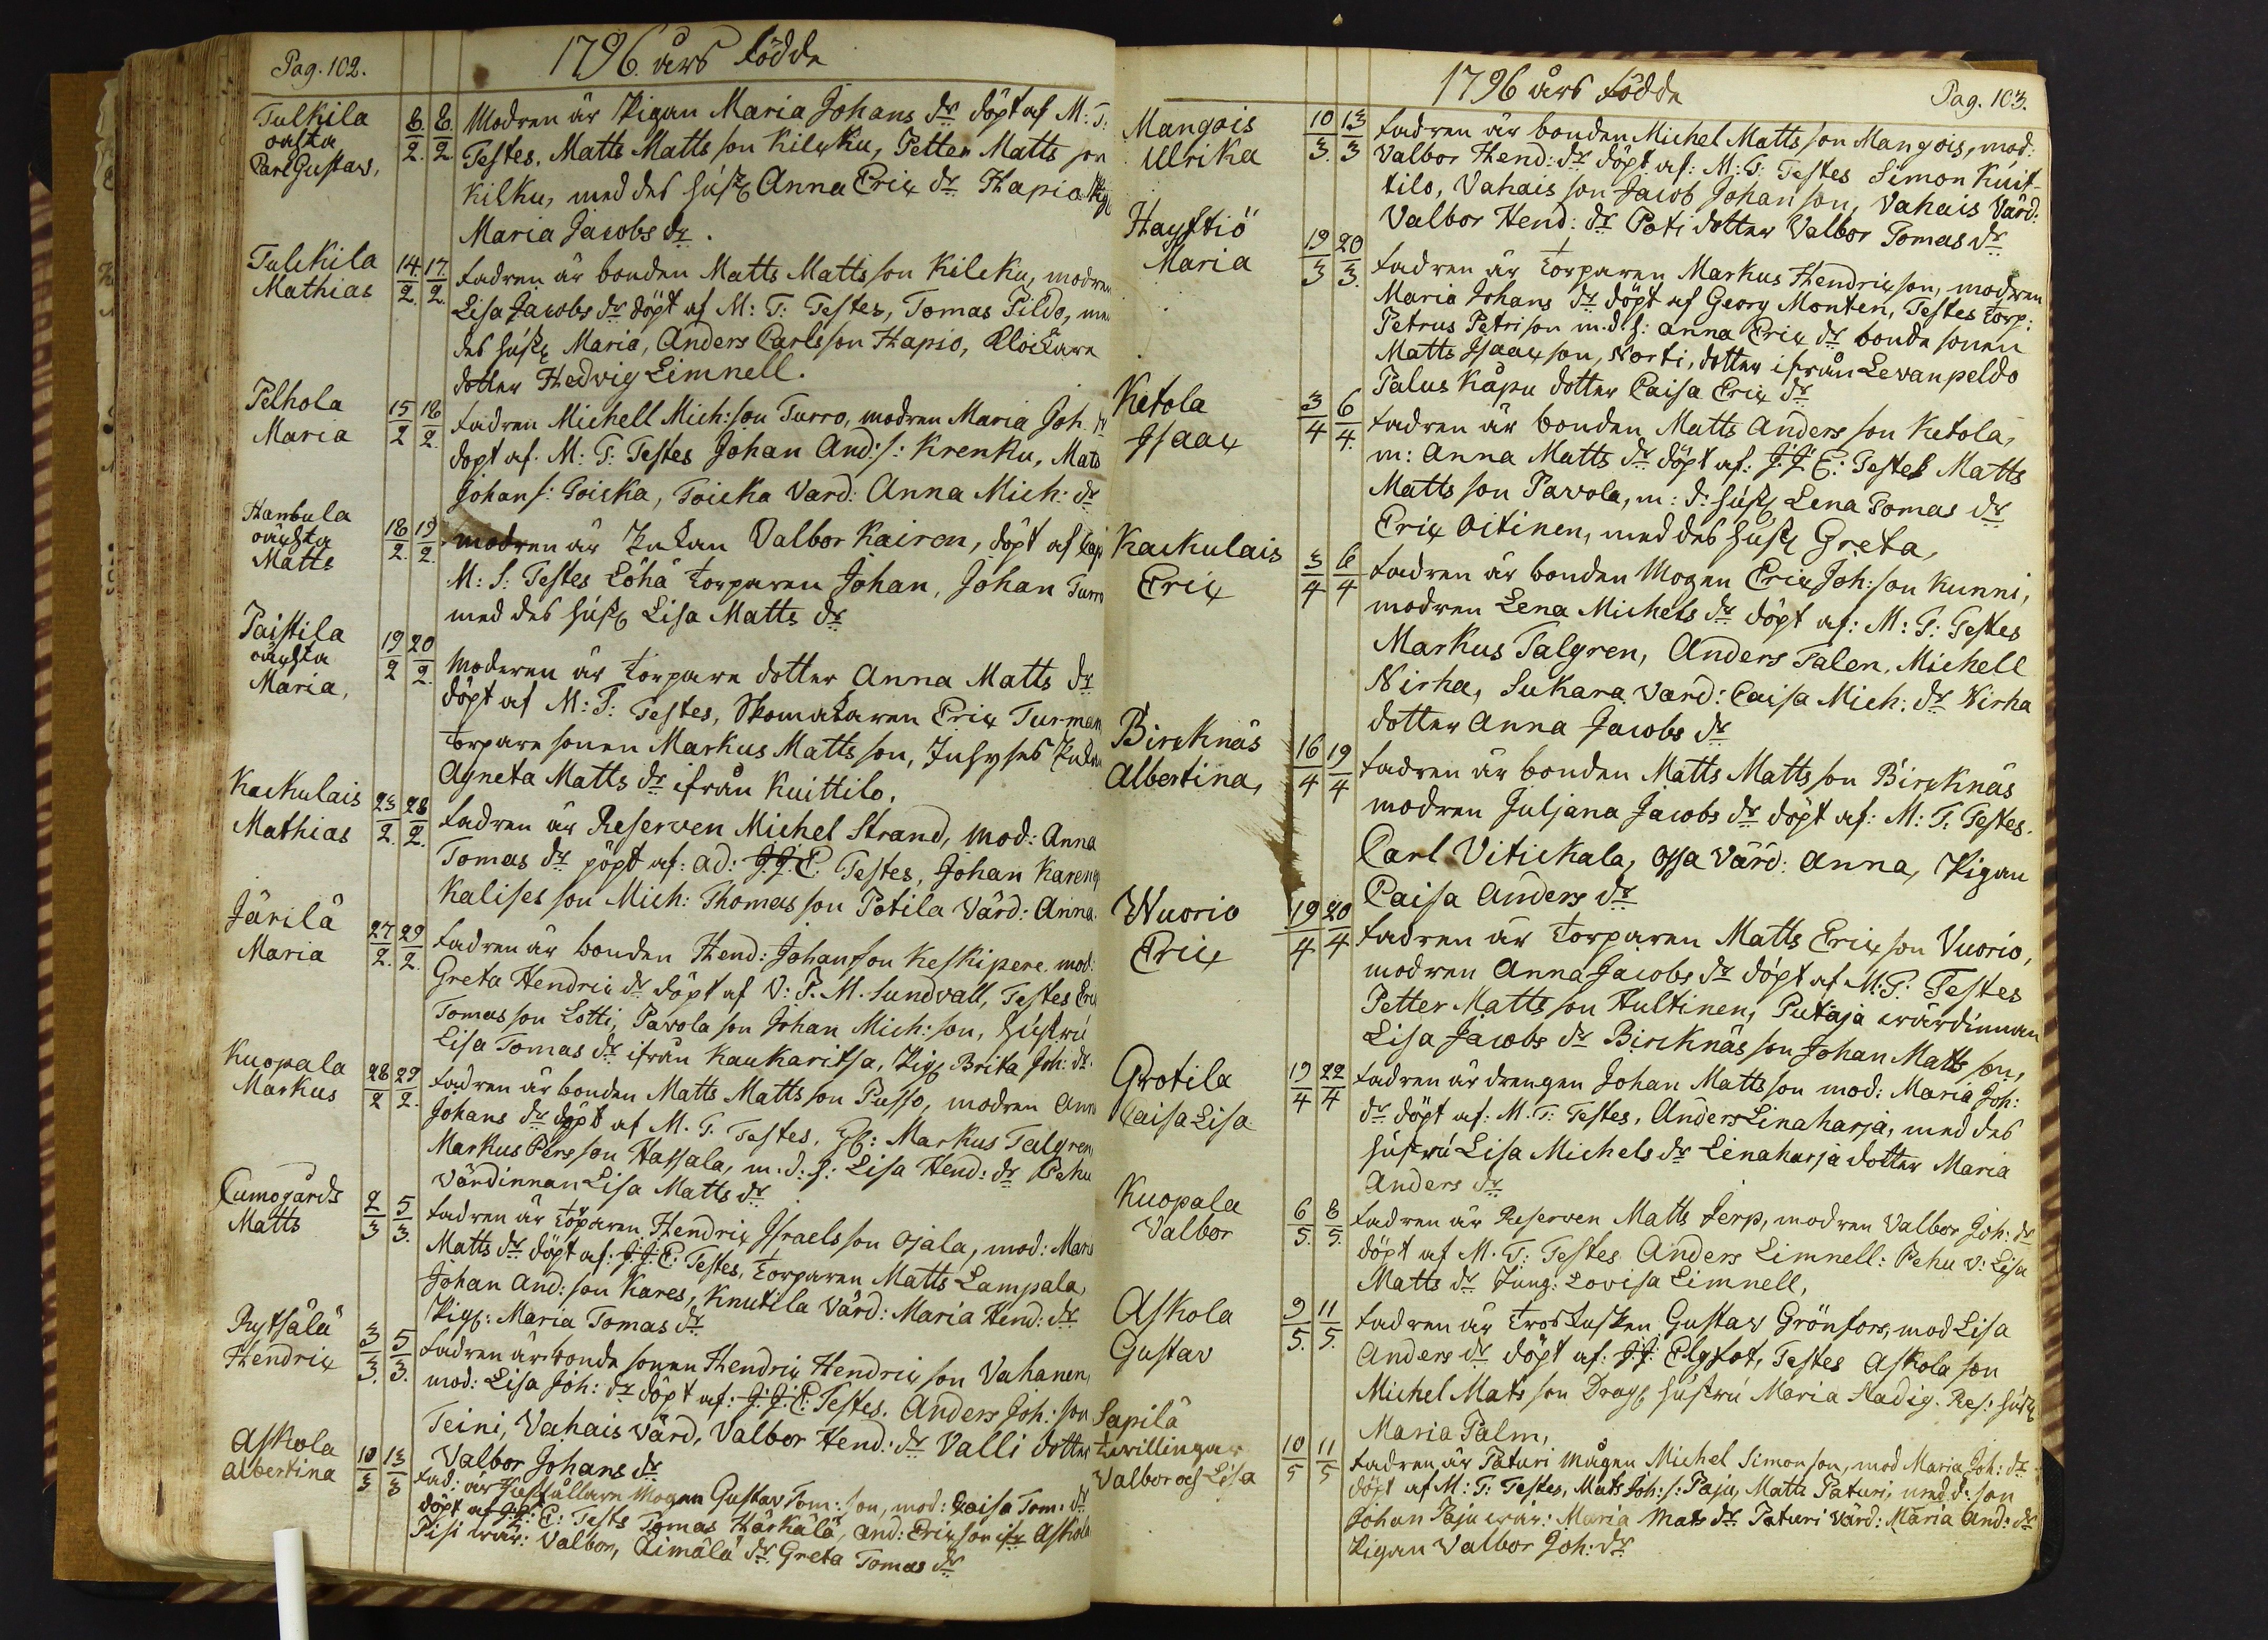 Pag. 102.
1796 års födde
Tulkila
oächta
Carl Gustav,
8/2. 8/2. Modren är Pigan Maria Johans dr döpt af M: T:
Testes, Matts Matts son Kilcku, Petter Matts son
Kilku, med des hust Anna Eric dr Hapio
Maria Jacobs dr.
Tulkila
Mathias
14/2. 17/2. fadren är bonden Matts Matts son Kilcku, modren
Lisa Jacobs dr döpt af M: T: Testes, Tomas Pildo, me
des hust Maria, Anders Carlsson Hapio, Clockare
dotter Hedvig Limnell.
Pelhola
Maria
15/2 18/2. fadren Michell Mich: son Turro, modren Maria Joh. dr
döpt af. M: T: Testes Johan And: s: Krenku, Mats
Johans: Toicka, Toicka Värd: Anna Mich: dr
Hambula
oächta
Matts
18/2. 19/2. modren är Valbor Kairen, döpt af
M: S: Testes Löhä torparen Johan, Johan Turro
med des hust Lisa Matts dr
Paistila
oächta
Maria,
19/2 20/2. Moderen är torpare dotter Anna Matts dr
döpt af M: T: Testes, Skomakaren Eric Turman,
torpare sonen Markus Matts son,
Agneta Matts dr ifrån Kuittilo.
Kackulais
Mathias
23/2. 28/2. fadren är Reserven Michel Strand, mod: Anna
Tomas dr döpt af: ad: J. J. E. Testes, Johan Karen
Kalises son Mich: Thomas son Potila Värd: Anna.
Järilä
Maria
27/2. 29/2. fadren är bonden Hend: Johanson Keskipere. mod:
Greta Hendric dr döpt af V: P. M. Sundvall, Testes Eric
Tomas son Lotti, Pavola son Johan Mich: son, hustru
Lisa Tomas dr ifrån Kaukaritsa, Pig Brita Joh: dr.
Kuopala
Markus
28/2 29/2. fadren är bonden Matts Matts son Pusso, modren Anna
Johans dr döpt af M. T. Testes, Markus Talgren,
Markus Pers son Hassala, m. d. h: Lisa Hend: dr Pehu
värdinnan Lisa Matts dr
Cumogårds
Matts
2/3 5/3. fadren är törparen Hendric Israels son Ojala, mod: Mar
Matts dr döpt af: J. J. E: Testes, torparen Matts Lampala,
Johan And: son Kares, Knutila Värd: Maria Hend: dr
Pig: Maria Tomas dr
Rytsälä
Hendric
3/3. 5/3. fadren är bonde sonen Hendric Hendric son Vahanen,
mod: Lisa Joh: dr döpt af: J. J. E: Testes. Anders Joh: son
Teini, Vahais Värd, Valbor Hend: dr Valli dotter
Valbor Johans dr
Askola
Albertina
10/3 13/3 fad: är Hushållare Mogen Gustav Tom: son, mod: Caisa Tom: dr
döpt af E: Tests Tomas Härkälä, And: Eric son Askola
Pisi wär: Valbor, Aimälä dr Greta Tomas dr
1796 års födde
Pag. 103.
Mangois
Ulrika
10/3. 13/3 fadren är bonden Michel Matts son Mangois, mod:
Valbor Hend: dr döpt af: M: T: Testes Simon Kuit-
tilo, Vahais son Jacob Johan son, Vahais Värd:
Valbor Hend: dr Poti dotter Valbor Tomas dr
Haystiö
Maria
19/3 20/3. fadren är torparen Markus Hendric son, modren
Maria Johans dr döpt af Georg Monten, Testes torp:
Petrus Petri son m. d. h: anna Eric dr bonde sonen
Matts Isaac son, Norti, dotter ifrån Levanpeldo
Palus Kåpu dotter Caisa Eric dr
Ketola
Isaac
3/4 6/4. fadren är bonden Matts Anders son Ketola,
m: Anna Matts dr döpt af: J. J. E: Testes Matts
Matts son Pavola, m: d: hust Lena Tomas dr
Eric Oitinen, med des hust Greta,
Kackulais
Eric
3/4 6/4 fadren är bonden Mogen Eric Joh: son Kunni,
modren Lena Michels dr döpt af: M: T: Testes
Markus Talgren, Anders Talen, Michell
Nirha, Sukara Värd: Caisa Mich: dr Nirha
dotter Anna Jacobs dr
Bircknäs
Albertina,
16/4 19/4 fadren är bonden Matts Matts son Bircknäs
modren Juljana Jacobs dr döpt af: M: T: Testes.
Carl Vitickala, Ossa Värd: Anna, Pigan
Caisa Anders dr
Wuorio
Eric
19/4 20/4 fadren är torparen Matts Eric son Vuorio,
modren Anna Jacobs dr döpt af M: T: Testes
Petter Matts son Hultinen, Putaja wärdinnan
Lisa Jacobs dr Bircknäs son Johan Matts son,
Grotila
Caisa Lisa
19/4 22/4 fadren är drengen Johan Matts son mod: Maria Joh:
dr döpt af: M. T: Testes, Anders Linaharja, med des
hustru Lisa Michels dr Linaharja dotter Maria
Anders dr
Kuopala
Valbor
6/5. 8/5. fadren är Reserven Matts Jerp, modren Valbor Joh: dr
döpt af M. T: Testes Anders Limnell: Pehu v: Lisa
Matts dr Jung: Lovisa Limnell,
Askola
Gustav
9/5. 11/5. fadren är Gustav Grönfors, mod Lisa
Anders dr döpt af: J. J. Elgfot, Testes Askola son
Michel Mats son Drag hustru Maria Stadig. Res: hust
Maria Palm,
Sapilä
twillingar
Valbor och Lisa
10/5 11/5 fadren är Paturi mågen Michel Simon son, mod Maria Joh: dr
döpt af M: T: Testes, Mats Joh: s: Paju, Matts Paturi, med d: son
Johan Paju wär: Maria Mats dr Paturi Värd: Maria And: dr
Pigan Valbor Joh: dr